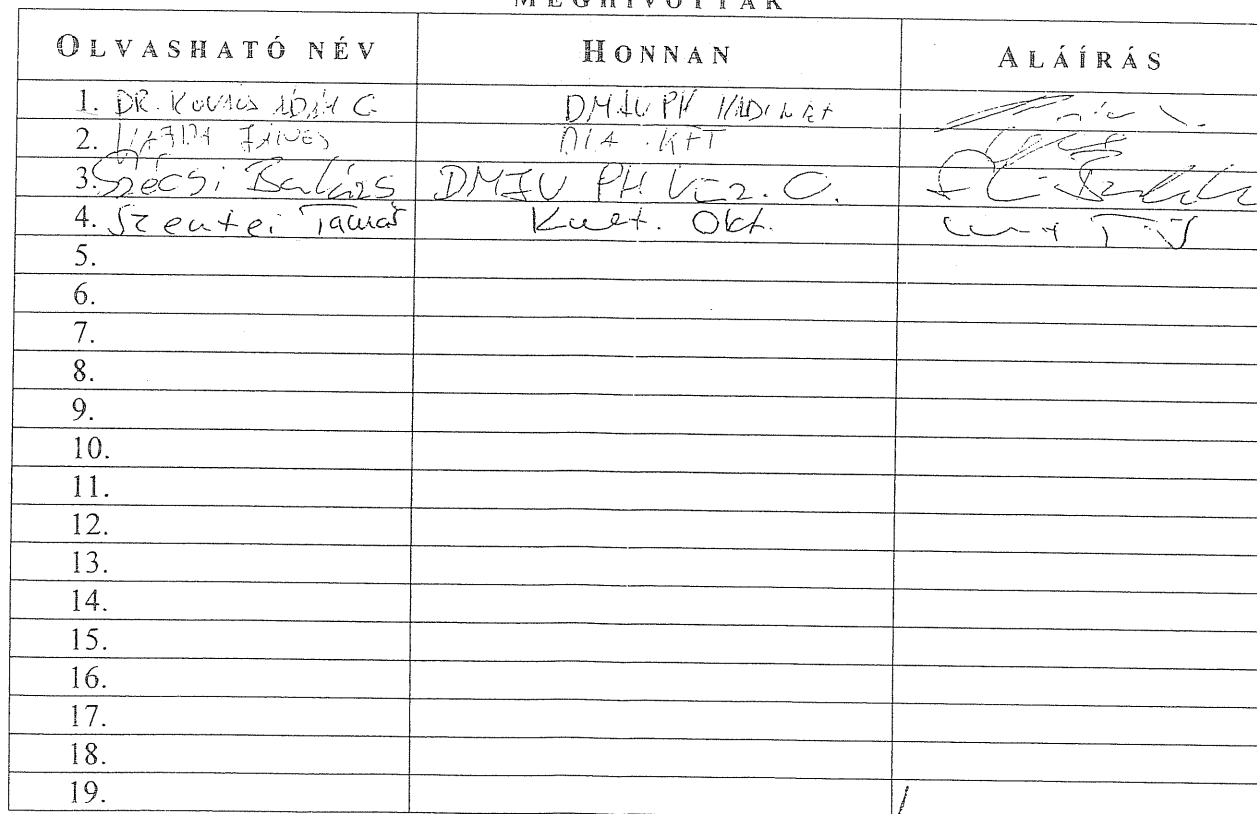 MEGHÍVOTTAK
OLVASHATÓ NÉV HONNAN ALÁÍRÁS
1. DR. KOVÁCS ÁDÁM G DMJV PH KABINET
2. JÁNOS KFT
3. Szécsi Balázs DMJV PH Vez. O.
4. Szentei Tamás Kult. Okt.
5.
6.
7.
8.
9.
10.
11.
12.
13.
14.
15.
16.
17.
18.
19.